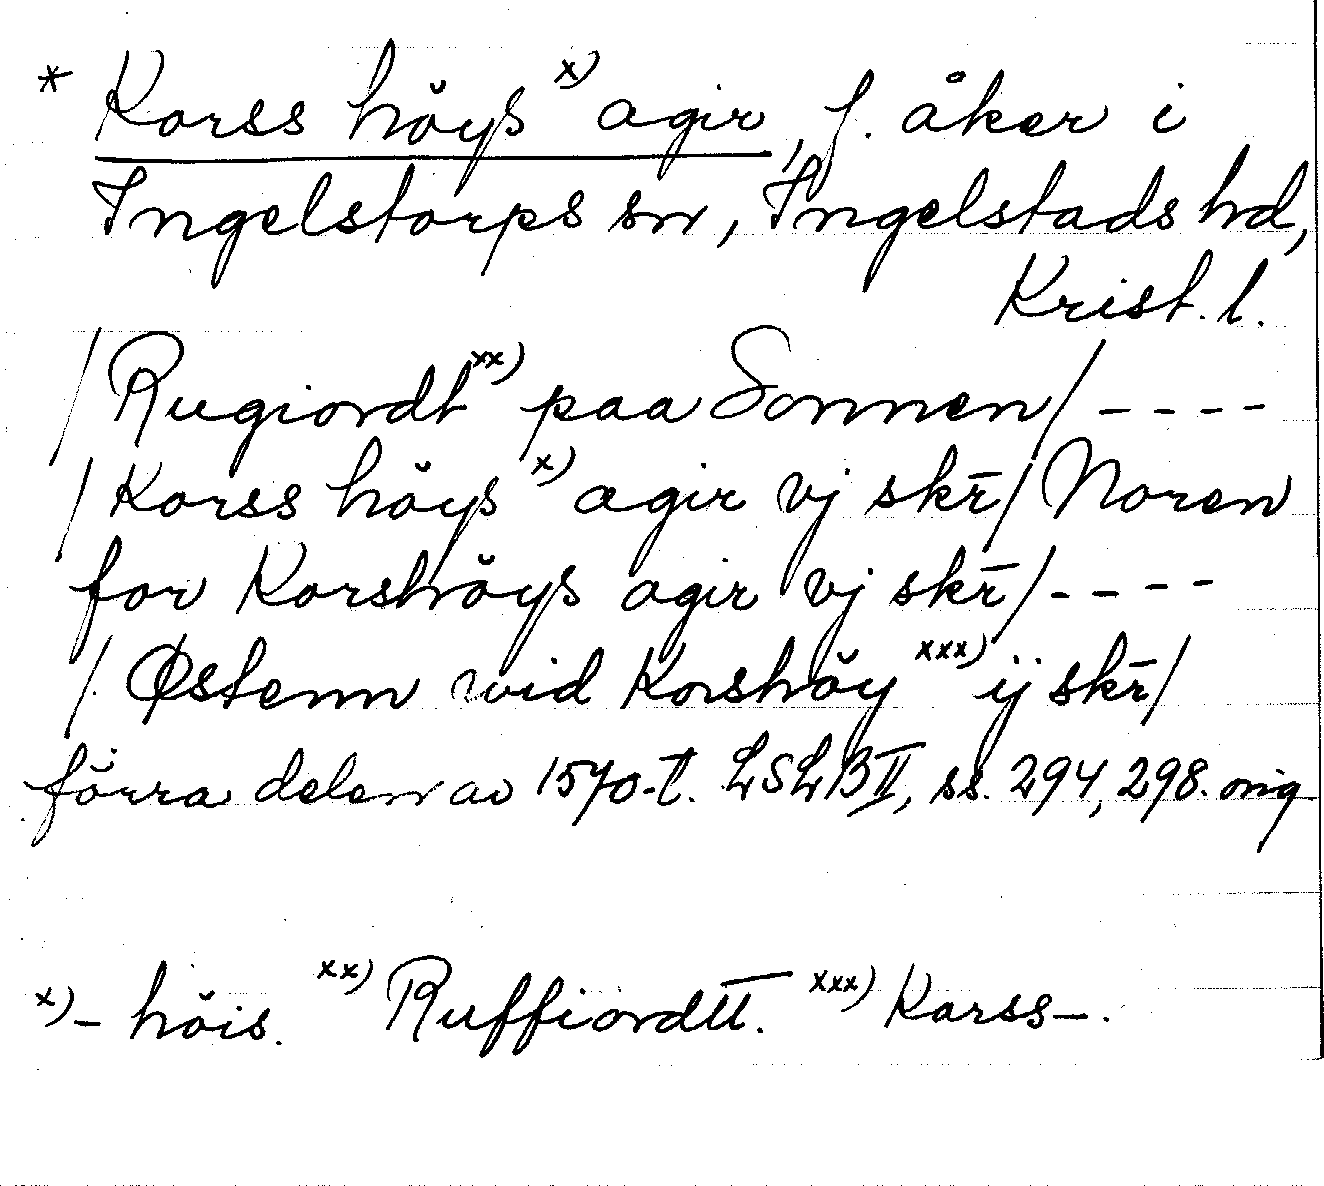 * Korss hŏys x) agir, f. åker i
Ingelstorps sn, Ingelstads hd,
Krist. l.
/Rugiordt xx) paa Sonnen/ ----
/Korss hŏys x) agir vj skr̄/ Noren
for Korshŏys agir vj skr̄/----
/Østenn wid Korshŏy xxx) ij skr̄/
förra delen av 1570-t. LSLB II, ss. 294, 298. orig
x) – hŏis. xx) Ruffiordtt. xxx) Karss–.